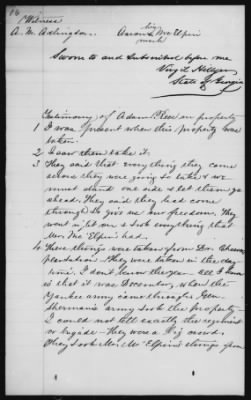 Witness
A. M. Adlington. Aaron his McElpin
mark
Sworn to and Subscribed before me
Virgil Hillyer
State of Georgia
Testimony of Adam on property
1 I was present when this property was
taken.
2 I saw them take it.
3 They said that everything they came
across they were going to take & we
must stand one side & let them go
ahead. They said they had come
through to give us our freedom. They
went in & took everything that
Mr. McElpin had.
4 These things were taken from
plantation. They were taken in the day
time. I don't know the year — all I know
is that it was December, when the
Yankee army came through. Gen
Sherman's army took the property —
I could not tell exactly the regiment
or brigade — they were a big crowd.
They took Mr. McElpin's things from